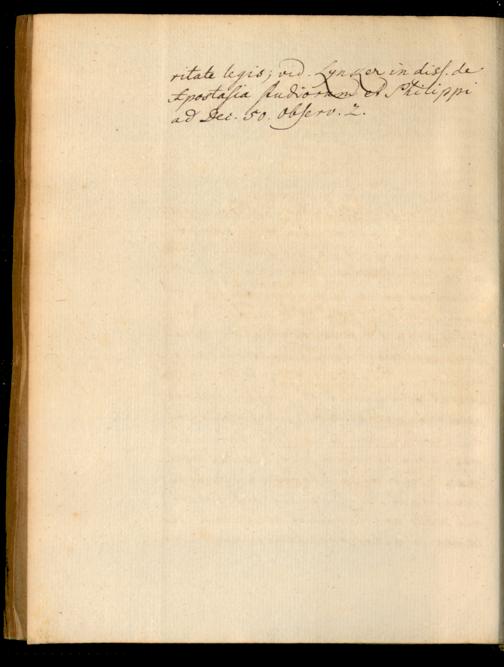 ritate legis; vid. Lyncker in diss. de
Apostasia Judiorum et Philippi
ad Dec. 50. Observ. 2.